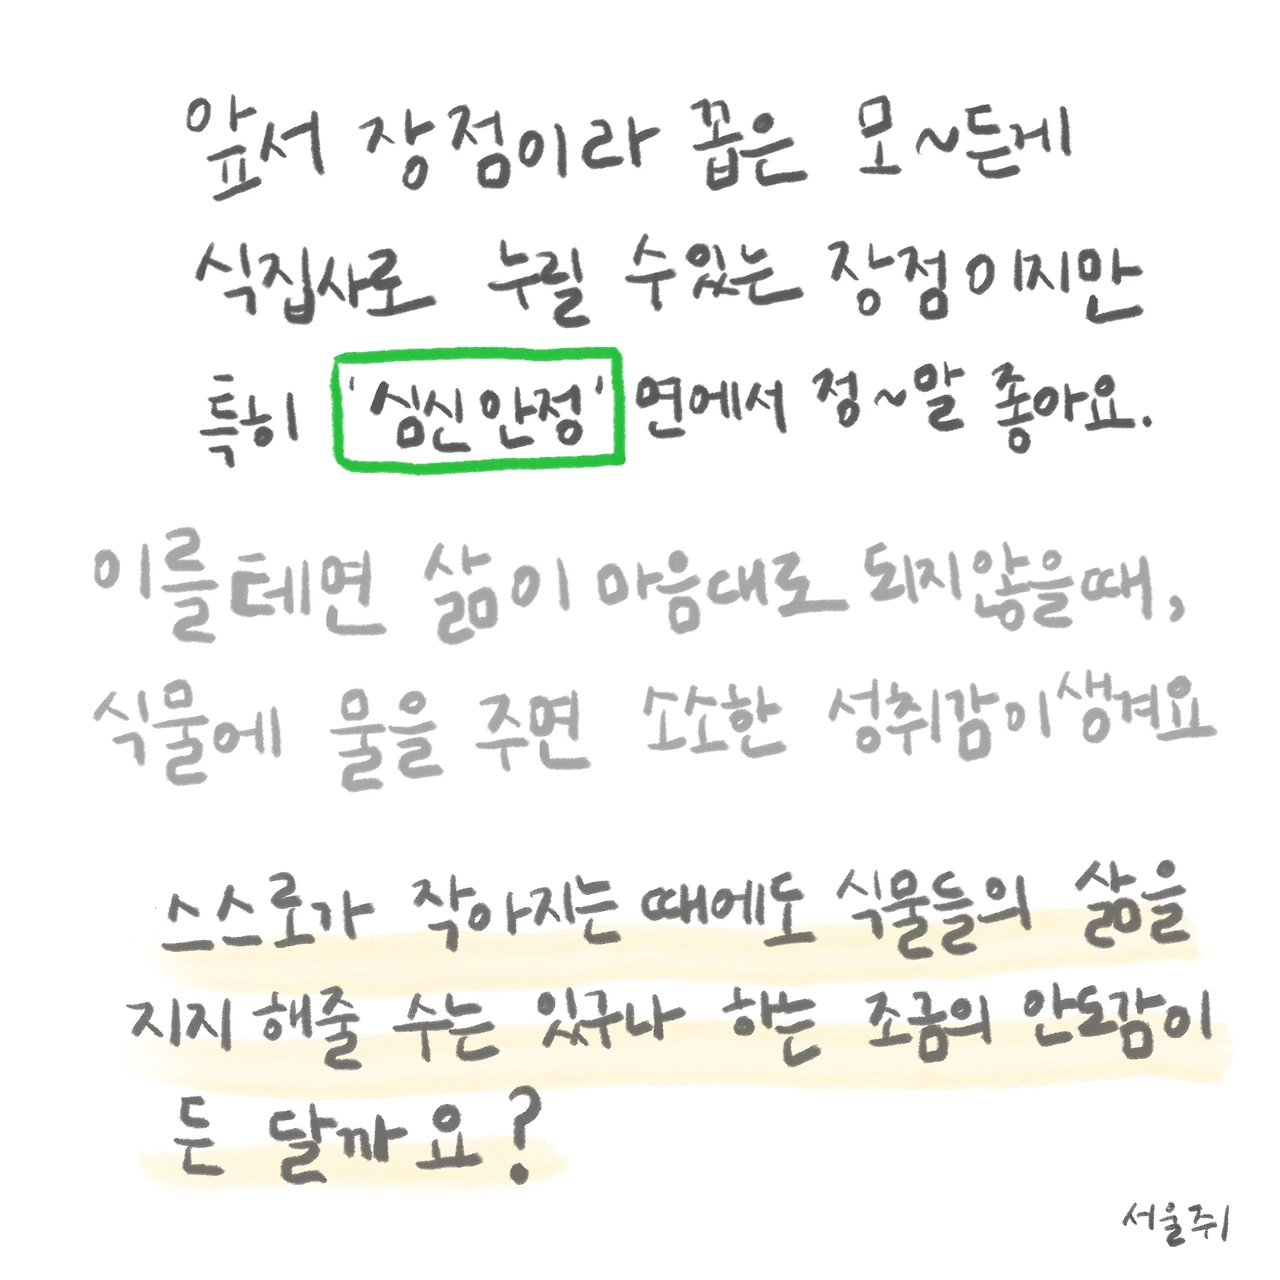 앞서 장점이라 꼽은 모~든게
식집사로 누릴 수있는 장점이지만
특히 '심신안정' 면에서 정~말 좋아요.
이를테면 삶이 마음대로 되지않을때,
식물에 물을 주면 소소한 성취감이생겨요
스스로가 작아지는 때에도 식물들의 삶을
지지 해줄 수는 있구나 하는 조금의 안도감이
든 달까요?
서울쥐